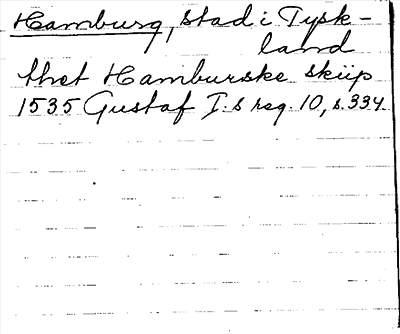 Hamburg, stad i Tysk-
land
thet Hamburske skiip
1535 Gustaf I:s reg. 10, s. 334.